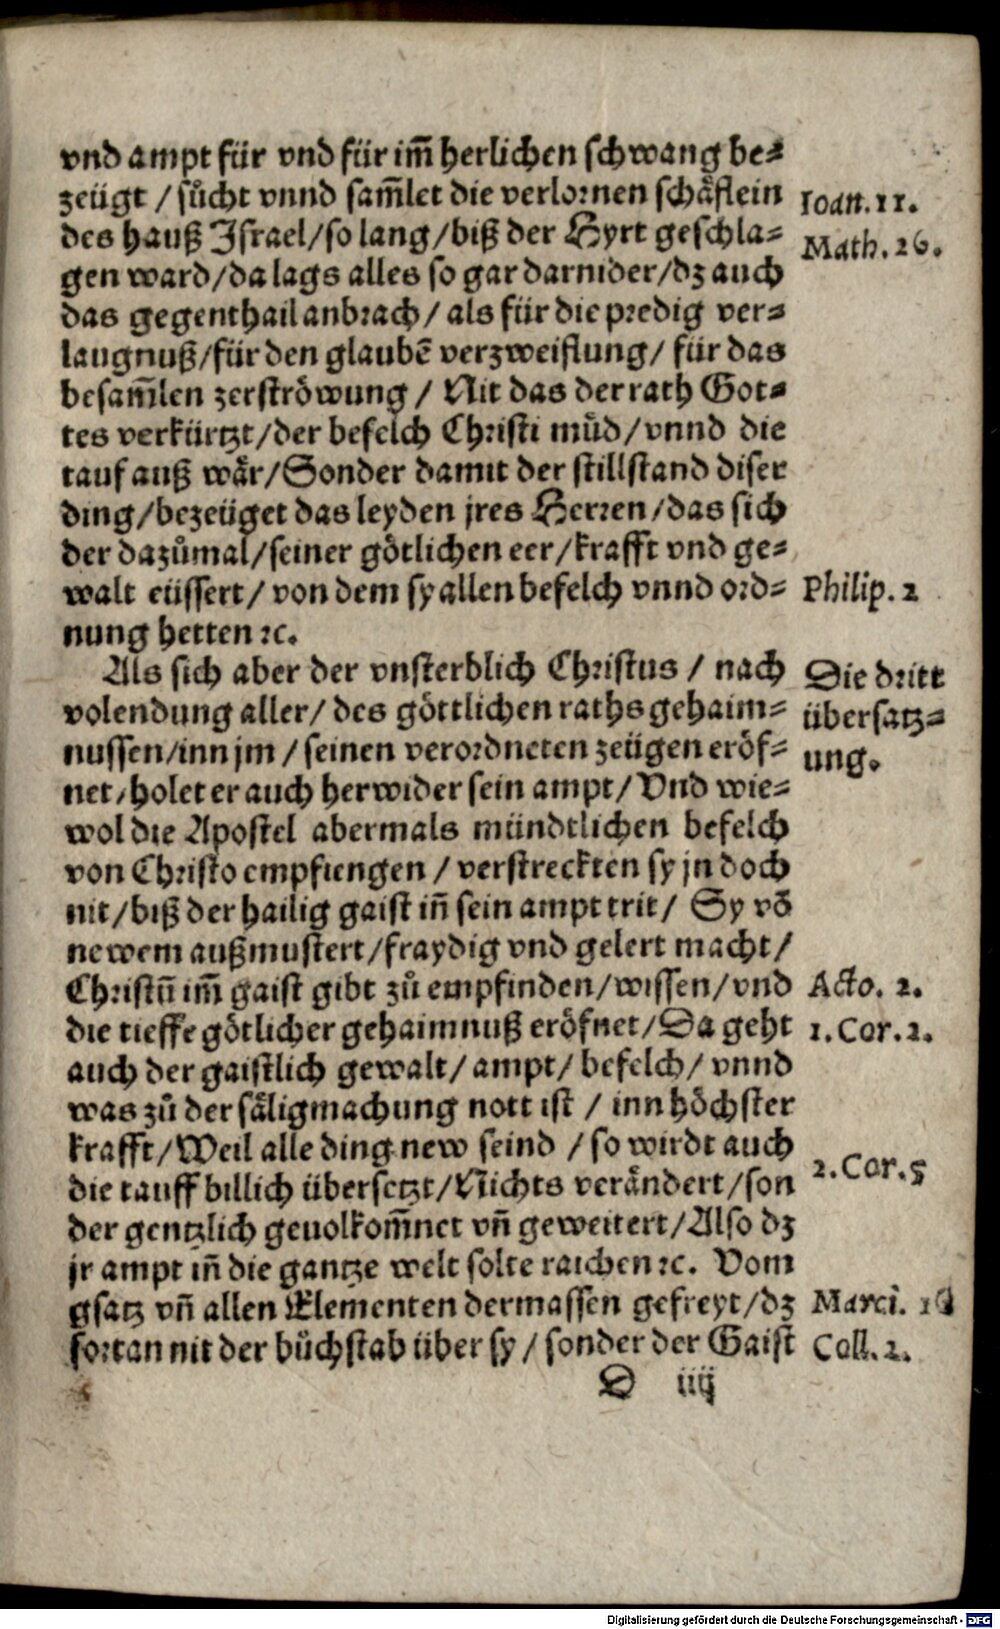 vnd ampt für vnd für im̃ herlichen schwang be⸗
zeügt / suͦcht vnnd sam̃let die verlornen schaͤflein
Ioan. 11.
des hauß Israel/so lang/biß der Hyrt geschla⸗
Math. 26.
gen ward/da lags alles so gar darnider/dz auch
das gegenthail anbrach/ als für die predig ver⸗
laugnuß/für den glaubē verzweiflung/ für das
besam̃len zerströwung / Nit das der rath Got⸗
tes verkürtzt/der befelch Christi muͤd/vnnd die
tauf auß waͤr/Sonder damit der stillstand diser
ding/bezeüget das leyden jres Herren/das sich
der dazuͦmal/seiner götlichen eer/krafft vnd ge⸗
walt eüssert/ von dem sy allen befelch vnnd ord⸗
Philip. 2
nung hetten ꝛc.
Als sich aber der vnsterblich Christus / nach
Die dritt
volendung aller/ des göttlichen raths gehaim⸗
übersatz⸗
nussen/inn jm / seinen verordneten zeügen eröf⸗
ung.
net/holet er auch herwider sein ampt/ Vnd wie⸗
wol die Apostel abermals mündtlichen befelch
von Christo empfiengen / verstreckten sy jn doch
nit/biß der hailig gaist iñ sein ampt trit/ Sy vō
newem außmustert/fraydig vnd gelert macht/
Christū im̃ gaist gibt zuͦ empfinden/wissen/vnd
Acto. 2.
die tieffe götlicher gehaimnuß eröfnet/Da geht
1. Cor. 2.
auch der gaistlich gewalt/ ampt/ befelch/ vnnd
was zuͦ der säligmachung nott ist / inn höchster
krafft/Weil alle ding new seind /so wirdt auch
2. Cor. 5
die tauff billich übersetzt/Nichts verändert/son
der gentzlich geuolkom̃net vñ geweitert/Also dz
jr ampt iñ die gantze welt solte raichen ꝛc. Vom
gsatz vñ allen Elementen dermassen gefreyt/dz
Marci. 16
fortan nit der buͦchstab über sy / sonder der Gaist
Coll. 2.
D iiij
Digitalisierung gefördert durch die Deutsche Forschungsgemeinschaft - DFG